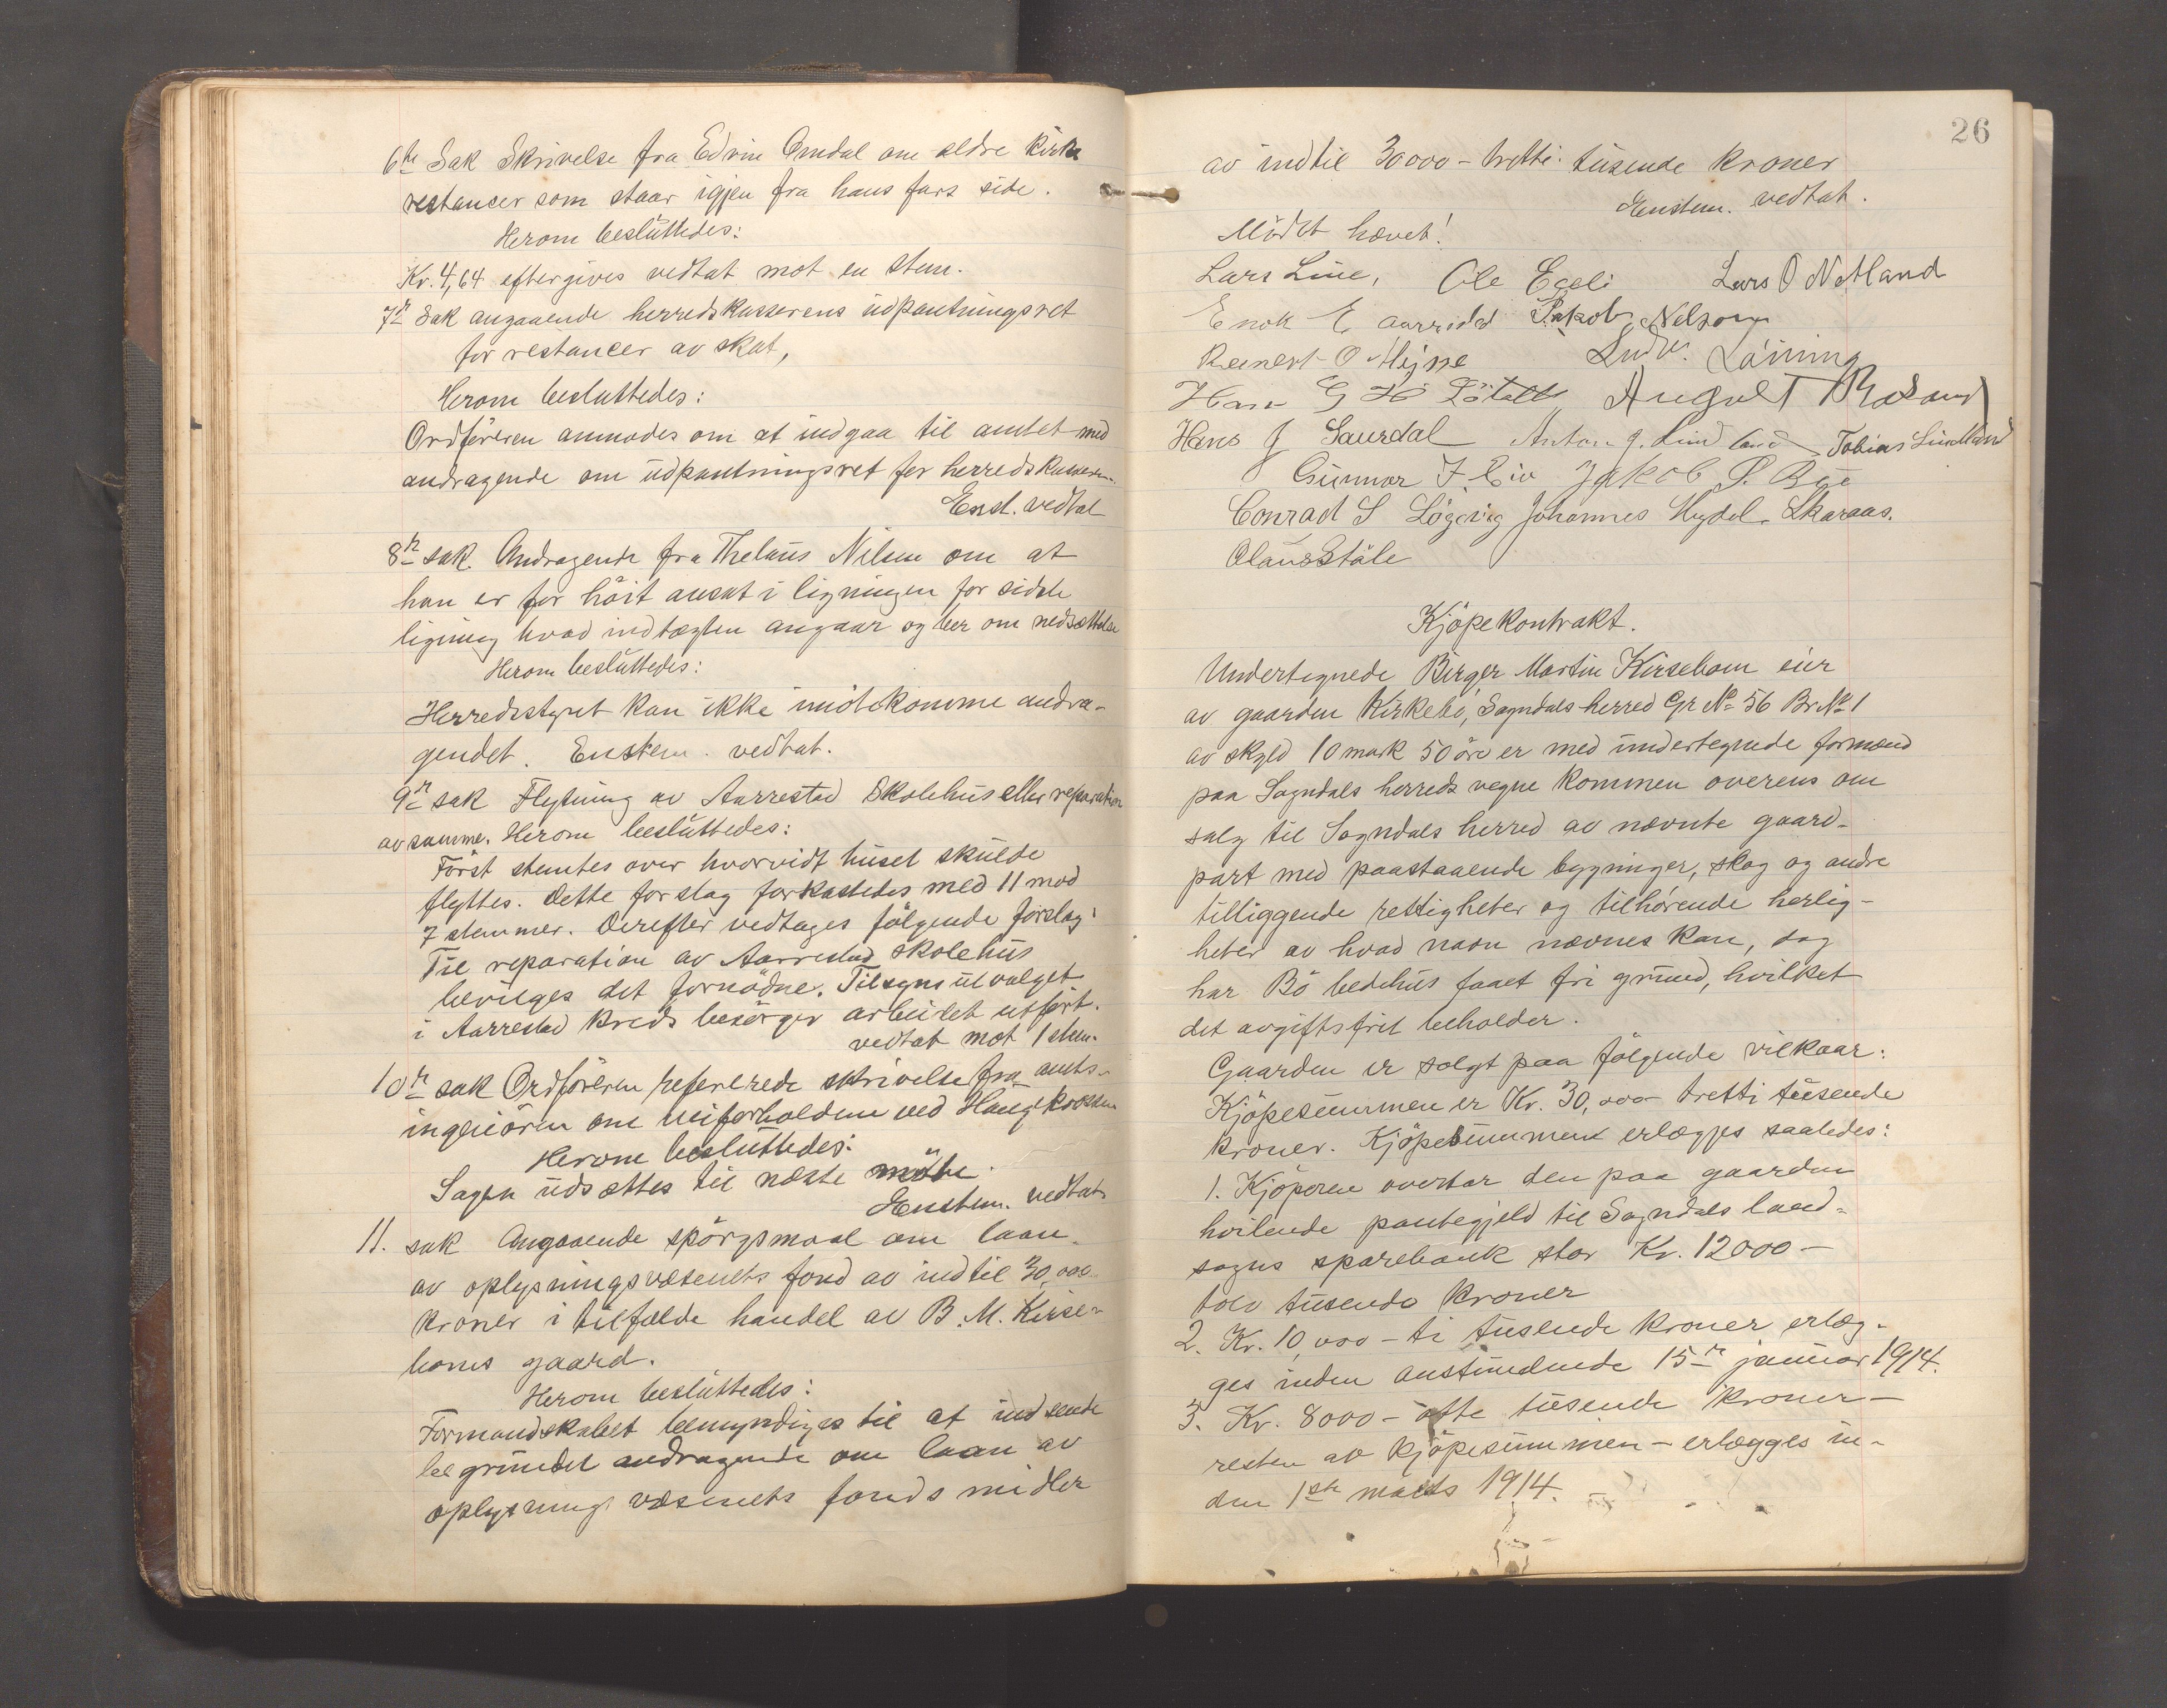 6te Sak Skrivelse fra Edvin Omdal om eldre kirke
restancer som staar igjen fra hans fars side.
Herom besluttedes:
Kr. 4,64 eftergives vedtat mot en stem.
7de Sak angaaende herredskasserens udpantningsret
for restancer av skat,
Herom besluttedes:
Ordföreren anmodes om at indgaa til amtet med
andragende om udpantningsret for herredskasseren.
Enst. vedtat
8de sak. Andragende fra Thelaus Nilsen om at
han er for höit ansat i ligningen for sidste
ligning hvad indtægten angaar og ber om nedsættelse
Herom besluttedes:
Herredsstyret kan ikke imötekomme andra-
gendet. Enstem. vedtat.
9de sak Flytning av Aarrestad Skolehus eller reparation
av samme. Herom besluttedes:
Först stemtes over hvorvidt huset skulde
flyttes. Dette forslag forkastedes med 11 mod
7 stemmer. Derefter vedtages fölgende forslag:
Til reparation av Aarrestad skolehus
bevilges det fornödne. Tilsyns utvalget
i Aarrestad kreds besörger arbeidet utfört.
vedtat mot 1 stem.
10de sak Ordföreren refererede skrivelse fra amts-
ingeniören om veiforholdene ved Haugekrossen
Herom besluttedes:
Sagen udsættes til næste möte.
Enstem. vedtat
11. sak Angaaende spörgsmaal om laan
av oplysningsvæsenets fond av indtil 30,000
kroner i tilfælde handel av B. M. Kirse-
boms gaard.
Herom besluttedes:
Formandskabet bemyndiges til at indsende
begrundet andragende om laan av
oplysningsvæsenets fonds midler
26
av indtil 30000 - tretti tusende kroner
Enstem. vedtat.
Mödet hævet!
Lars Line, Ole Egeli Lars O Netland
Enok E Jakob Nelson
Reinert O Ludv.
Hans G August
Hans J Saurdal Anton J. Lindland Tobias Lindland
Gunnar Jakob P.
Conrad S Lögevig Johannes Skaraas.
Olaus Ståle
Kjöpekontrakt.
Undertegnede Birger Martin Kirsebom eier
av gaarden Kirkebö, Sogndals herred Gr No 56 Br. No 1
av skyld 10 mark 50 öre er med undertegnede formænd
paa Sogndals herreds vegne kommen overens om
salg til Sogndals herred av nævnte gaard-
part med paastaaende bygninger, skog og andre
tilliggende rettigheter og tilhörende herlig-
heter av hvad navn nævnes kan, dog
har Bö bedehus faaet fri grund, hvilket
det avgiftsfrit beholder.
Gaarden er solgt paa fölgende vilkaar:
Kjöpesummen er Kr. 30,000 - tretti tusende
kroner. Kjöpesummen erlægges saaledes:
1. Kjöperen overtar den paa gaarden
hvilende pantegjeld til Sogndals land-
sogns sparebank stor Kr. 12000 -
tolv tusende kroner
2. Kr. 10,000 - ti tusende kroner erlæg-
ges inden anstundende 15de januar 1914.
3. Kr. 8000 - otte tusende kroner -
resten av kjöpesummen - erlægges in-
den 1ste marts 1914.